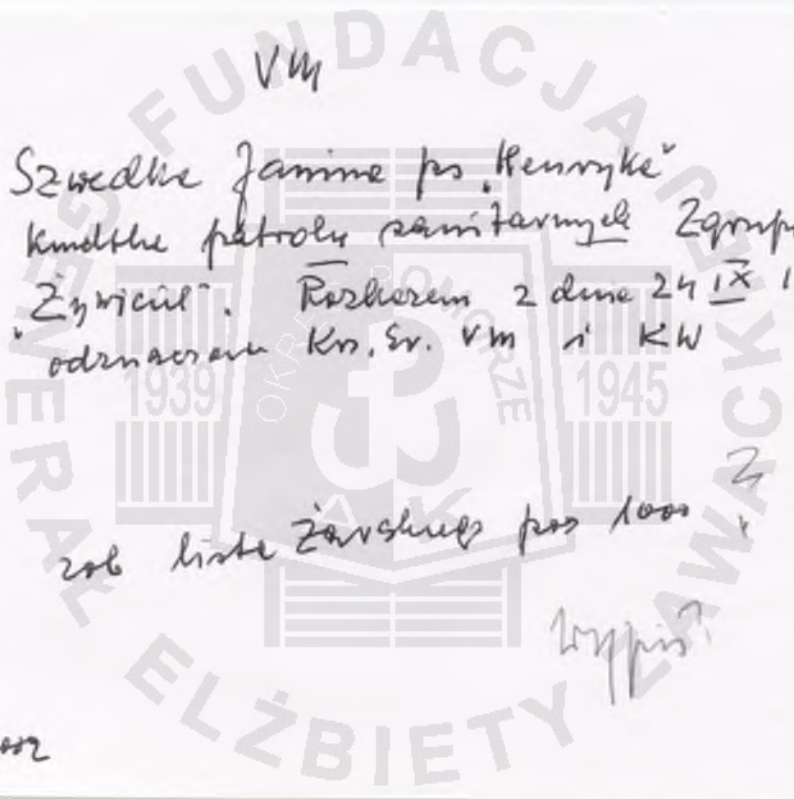 VM
Szwedka Janina ps „Henryka"
Kmdtka patrolu sanitarnych Zgrup
"Żywiciel". Rozkazem z dnia 24 IX 1
odznaczona Krz. Sr. VM i KW
zob lista Żarskiego poz 1000 ?
wypis?
FUNDACJA GENERAŁ ELŻBIETY ZAWACKIEJ
OKRĘG POMORZE
1939
1945
AK